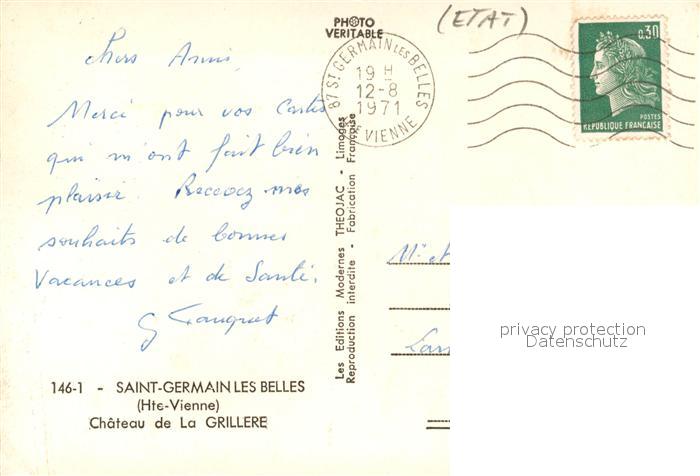 PHOTO
VERITABLE
(ETAT)
87 ST GERMAIN LES BELLES
19 H
12-8
1971
HTE VIENNE
0,30
POSTES
REPUBLIQUE FRANÇAISE
Chers Amis,
Merci pour vos Cartes
qui m'ont fait bien
plaisir. Recevez mes
souhaits de bonnes
Vacances et de Santé.
G
Les Editions Modernes THEOJAC - Limoges
Reproduction interdite - Fabrication Française
Mr et
privacy protection
Datenschutz
146-1 - SAINT-GERMAIN LES BELLES
(Hte-Vienne)
Château de La GRILLERE